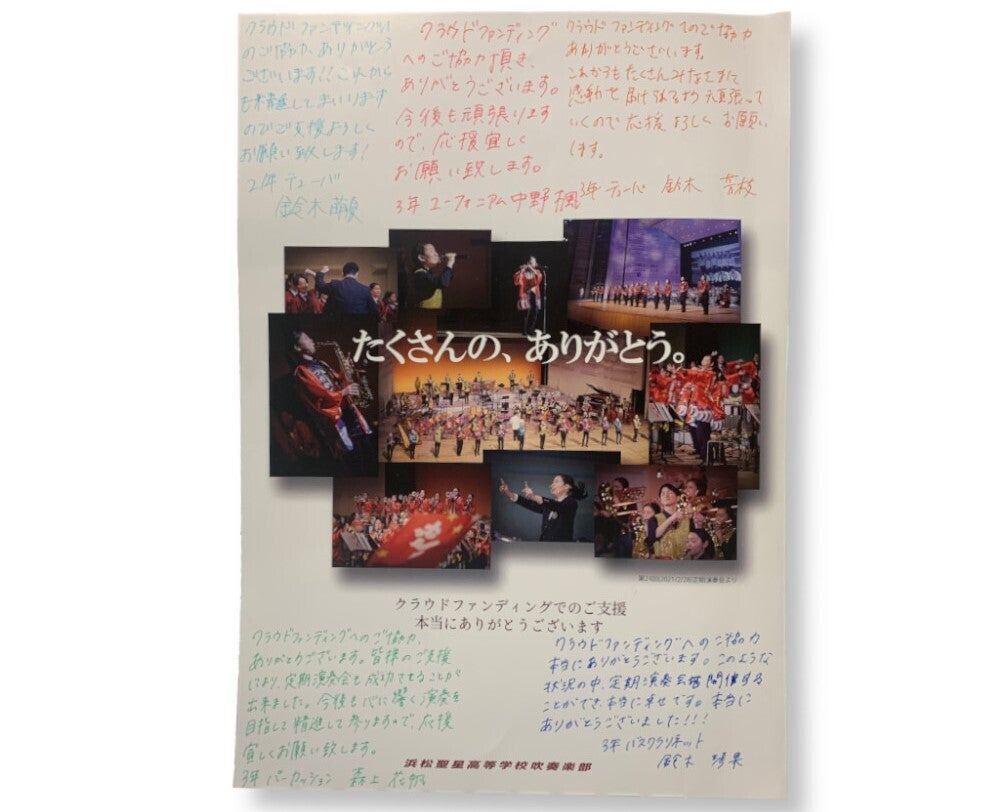 クラウドファンディング
のご協力、ありがとう
ございます!!これから
も精進してまいります
のでご支援よろしく
お願い致します!
2年 テューバ
鈴木
クラウドファンディング
へのご協力頂き、
ありがとうございます。
今後も頑張ります
ので、応援宜しく
お願い致します。
3年 ユーフォニアム 中野 楓
クラウドファンディングでのご協力
ありがとうございます。
これからもたくさんみなさまに
感動を届け 頑張って
いくので応援よろしくお願い
します。
3年 テューバ 鈴木
たくさんの、ありがとう。
第24回(2021/2/28)定期演奏会より
クラウドファンディングでのご支援
本当にありがとうございます
クラウドファンディングへのご協力、
ありがとうございます。皆様のご支援
により、定期演奏会も成功させることが
出来ました。今後も心に響く演奏を
目指して精進して参りますので、応援
宜しくお願い致します。
3年 パーカッション 森上
クラウドファンディングへのご協力
本当にありがとうございます。このような
状況の中、定期演奏会を開催する
ことができ本当に幸せです。本当に
ありがとうございました!!!
3年 バスクラリネット
鈴木
浜松聖星高等学校吹奏楽部